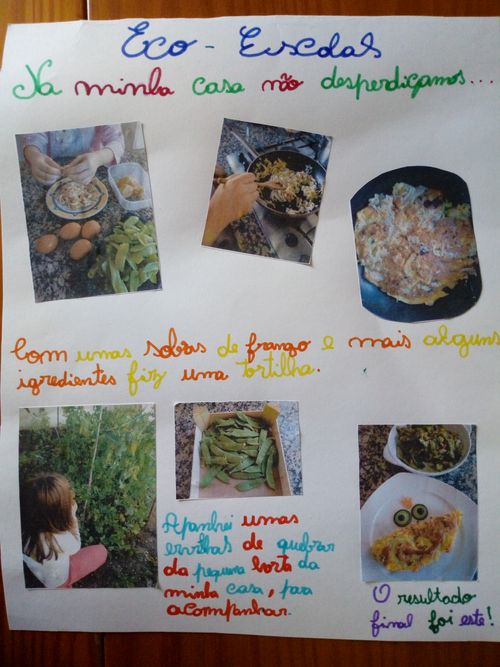 Eco - Escolas
Na minha casa não desperdiçamos...
Com umas sobras de frango e mais alguns
igredientes fiz uma tortilha.
Apanhei umas
ervilhas de quebrar
da pequena horta da
minha casa, para
acompanhar.
O resultado
final foi este!